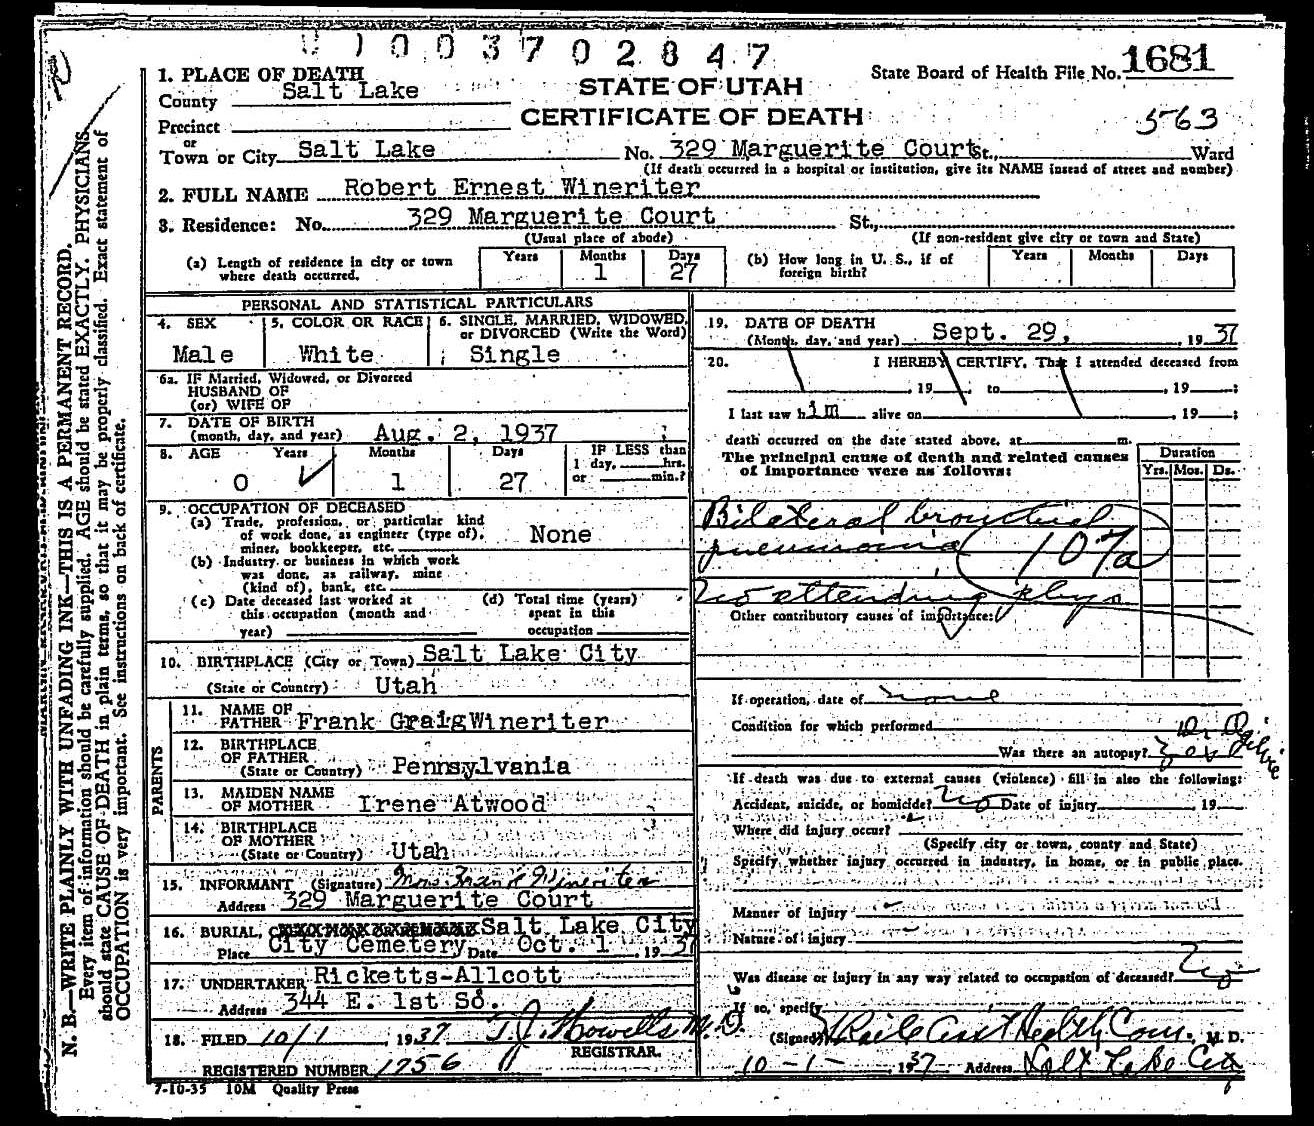 003702847
1. PLACE OF DEATH
County Salt Lake
STATE OF UTAH
State Board of Health File No. 1681
CERTIFICATE OF DEATH
563
Precinct
or
Town or City Salt Lake No. 329 Marguerite Court St., Ward
(If death occurred in a hospital or institution, give its NAME insead of street and number)
2. FULL NAME Robert Ernest Wineriter
3. Residence: No. 329 Marguerite Court St.,
(Usual place of abode) (If non-resident give city or town and State)
(a) Length of residence in city or town where death occurred. Years Months 1 Days 27
(b) How long in U. S., if of foreign birth? Years Months Days
PERSONAL AND STATISTICAL PARTICULARS
4. SEX Male
5. COLOR OR RACE White
6. SINGLE, MARRIED, WIDOWED, or DIVORCED (Write the Word) Single
6a. IF Married, Widowed, or Divorced
HUSBAND OF
(or) WIFE OF
7. DATE OF BIRTH
(month, day, and year) Aug. 2, 1937
8. AGE Years Months Days IF LESS than
1 day, hrs.
or min.?
0 1 27
9. OCCUPATION OF DECEASED
(a) Trade, profession, or particular kind
of work done, as engineer (type of),
miner, bookkeeper, etc. None
(b) Industry or business in which work
was done, as railway, mine
(kind of), bank, etc.
(c) Date deceased last worked at
this occupation (month and
year)
(d) Total time (years)
spent in this
occupation
10. BIRTHPLACE (City or Town) Salt Lake City
(State or Country) Utah
PARENTS
11. NAME OF
FATHER Frank Graig Wineriter
12. BIRTHPLACE
OF FATHER
(State or Country) Pennsylvania
13. MAIDEN NAME
OF MOTHER Irene Atwood
14. BIRTHPLACE
OF MOTHER
(State or Country) Utah
15. INFORMANT (Signature) Mrs. Frank Wineriter
Address 329 Marguerite Court
16. BURIAL, Salt Lake City
Place City Cemetery Date Oct. 1, 1937
17. UNDERTAKER Ricketts-Allcott
Address 344 E. 1st So.
18. FILED 10/1 1937 T.J. Howells M.D.
REGISTRAR.
REGISTERED NUMBER 1756
7-10-35 10M Quality Press
19. DATE OF DEATH
(Month, day, and year) Sept. 29, 1937
20. I HEREBY CERTIFY, That I attended deceased from
, 19 to , 19 ;
I last saw him alive on , 19 ;
death occurred on the date stated above, at m.
The principal cause of death and related causes
of importance were as follows:
Duration
Yrs. Mos. Ds.
Bilateral bronchial
pneumonia 107a
No attending phys
Other contributory causes of importance:
If operation, date of none
Condition for which performed
Was there an autopsy? yes Dr Ogilvie
If death was due to external causes (violence) fill in also the following:
Accident, suicide, or homicide? No Date of injury , 19
Where did injury occur?
(Specify city or town, county and State)
Specify whether injury occurred in industry, in home, or in public place.
Manner of injury
Nature of injury
Was disease or injury in any way related to occupation of deceased? No
If so, specify
(Signed) Asst Health Com. M. D.
10-1- 1937 Address Salt Lake City
N. B.—WRITE PLAINLY WITH UNFADING INK—THIS IS A PERMANENT RECORD.
Every item of information should be carefully supplied. AGE should be stated EXACTLY. PHYSICIANS
should state CAUSE OF DEATH in plain terms, so that it may be properly classified. Exact statement of
OCCUPATION is very important. See instructions on back of certificate.